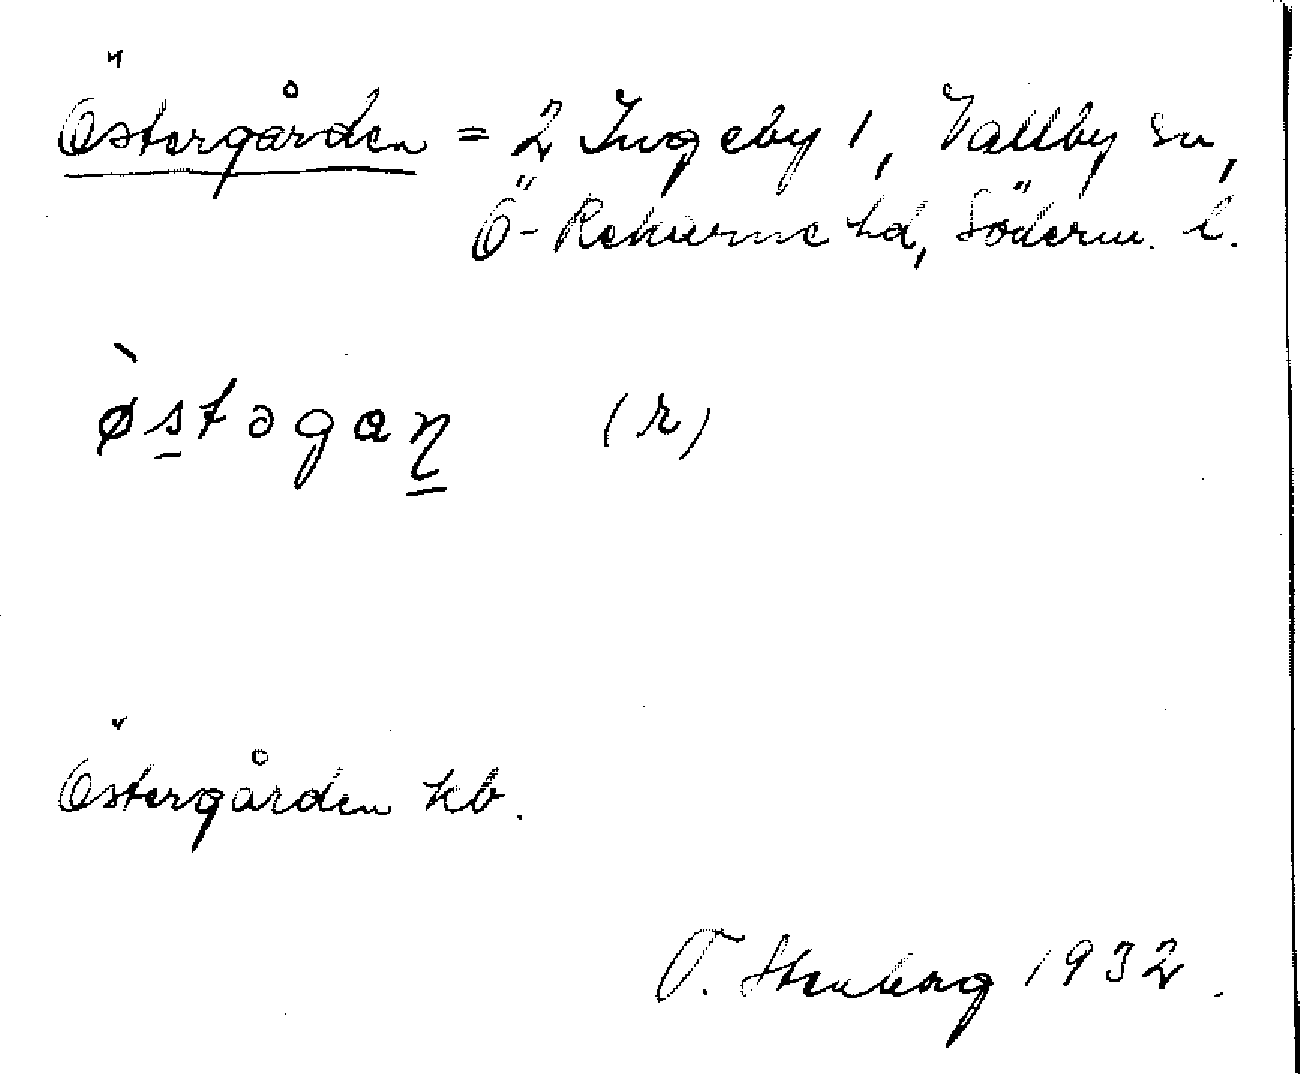 Östergården = 2 Ingeby 1, Vallby sn,
Ö-Rekarne hd, Söderm. l.
ø̀stəgaɳ (r)
Östergården kb.
T. Stenberg 1932.